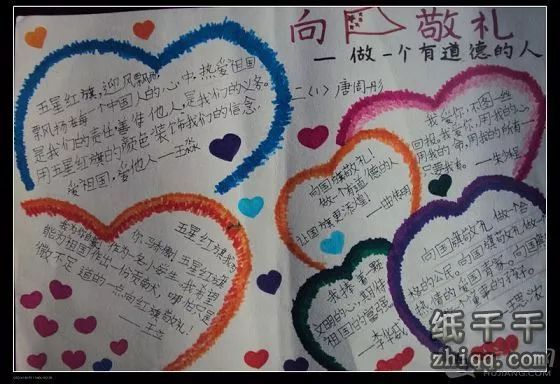 向 敬礼
—做一个有道德的人
二(1) 唐周彤
五星红旗,迎风飘飘
飘扬在每一个中国人的心中,热爱祖国
是我们的责任,善待他人,是我们的义务。
用五星红旗的颜色装饰我们的信念
爱祖国,爱他人——王淼
我爱你,不图一丝
回报。我爱你,用我的心
用我的命,用我的所有
只要我有。
向国旗敬礼!
做一个有道德的人
让国旗更添辉!
你,五星红旗
作为一名小学生,我希望
能为祖国作出一份贡献,哪怕只是
微不足道的一点向红旗敬礼!
——王
我捧着一颗
文明的心,期待
祖国的富强
向国旗敬礼,做一个合
格的公民。向国旗敬礼做一个有
纸千千
zhiqq.com
HUJIANG.COM